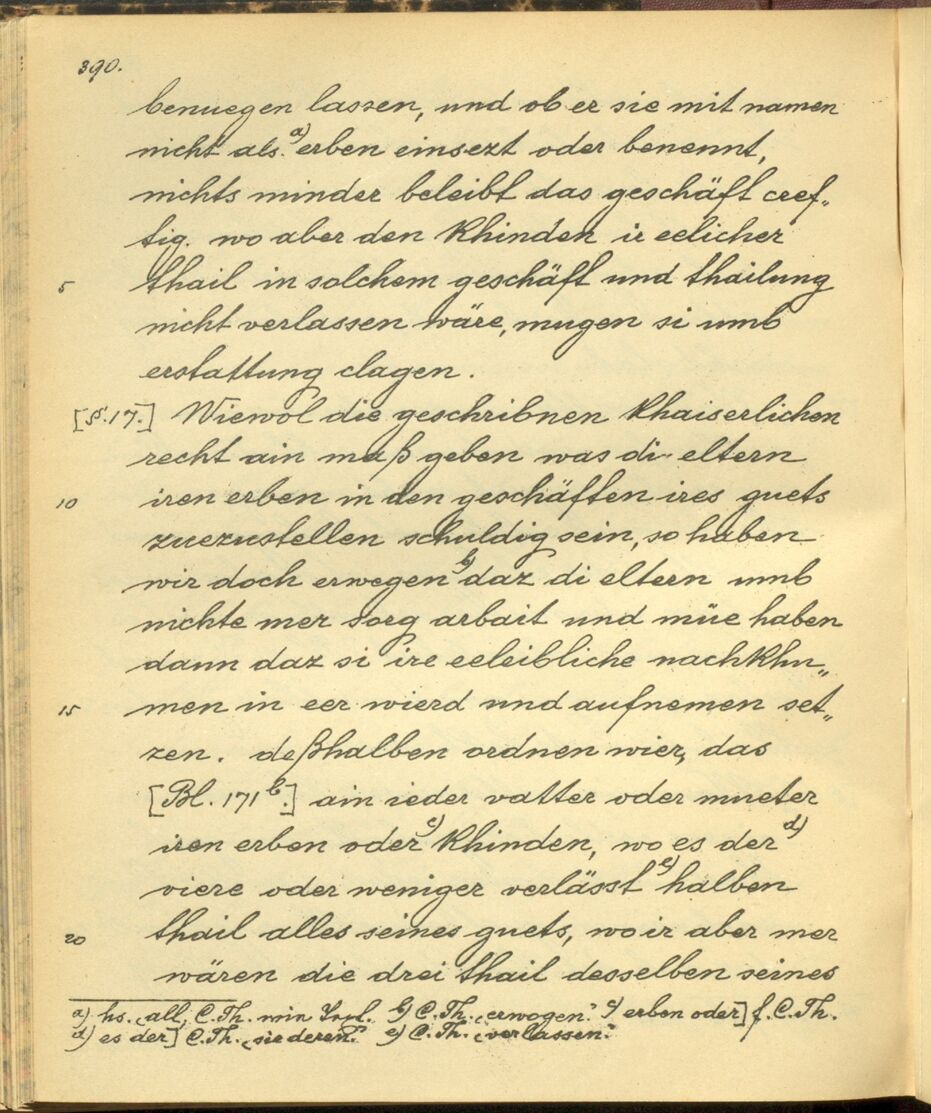 390.
benuegen lassen, und ob er sie mit namen
nicht als a) erben einsezt oder benennt,
nichts minder beleibt das geschäft cref„
tig. wo aber den Khinden ir eelicher
5 thail in solchem geschäft und thailung
nicht verlassen wäre, mugen si umb
erstattung clagen.
[§.17.] Wiewol die geschribnen khaiserlichen
recht ain maß geben was di eltern
10 iren erben in den geschäften ires guets
zuezustellen schuldig sein, so haben
wir doch erwegen b) daz di eltern umb
nichte mer sorg arbait und müe haben
dann daz si ire eeleibliche nachkhu„
15 men in eer wierd und aufnemen set„
zen. deßhalben ordnen wier, das
[Bl. 171 b.] ain ieder vatter oder mueter
iren erben oder c) Khinden, wo es der d)
viere oder weniger verlässt e) halben
20 thail alles seines guets, wo ir aber mer
wären die drei thail desselben seines
a) hs. „all, C. Th. min b) C. Th. „erwogen." c) erben oder] f. C. Th.
d) es der] C. Th. „sie deren." e) C. Th. „verlassen."